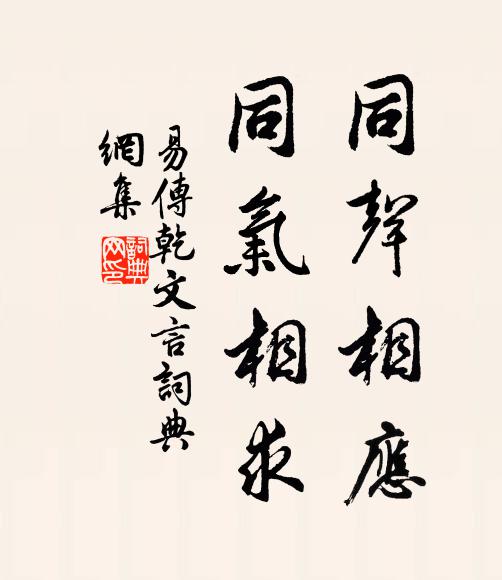 同聲相應
同氣相求
易傳乾文言詞典
網集
詞典網印